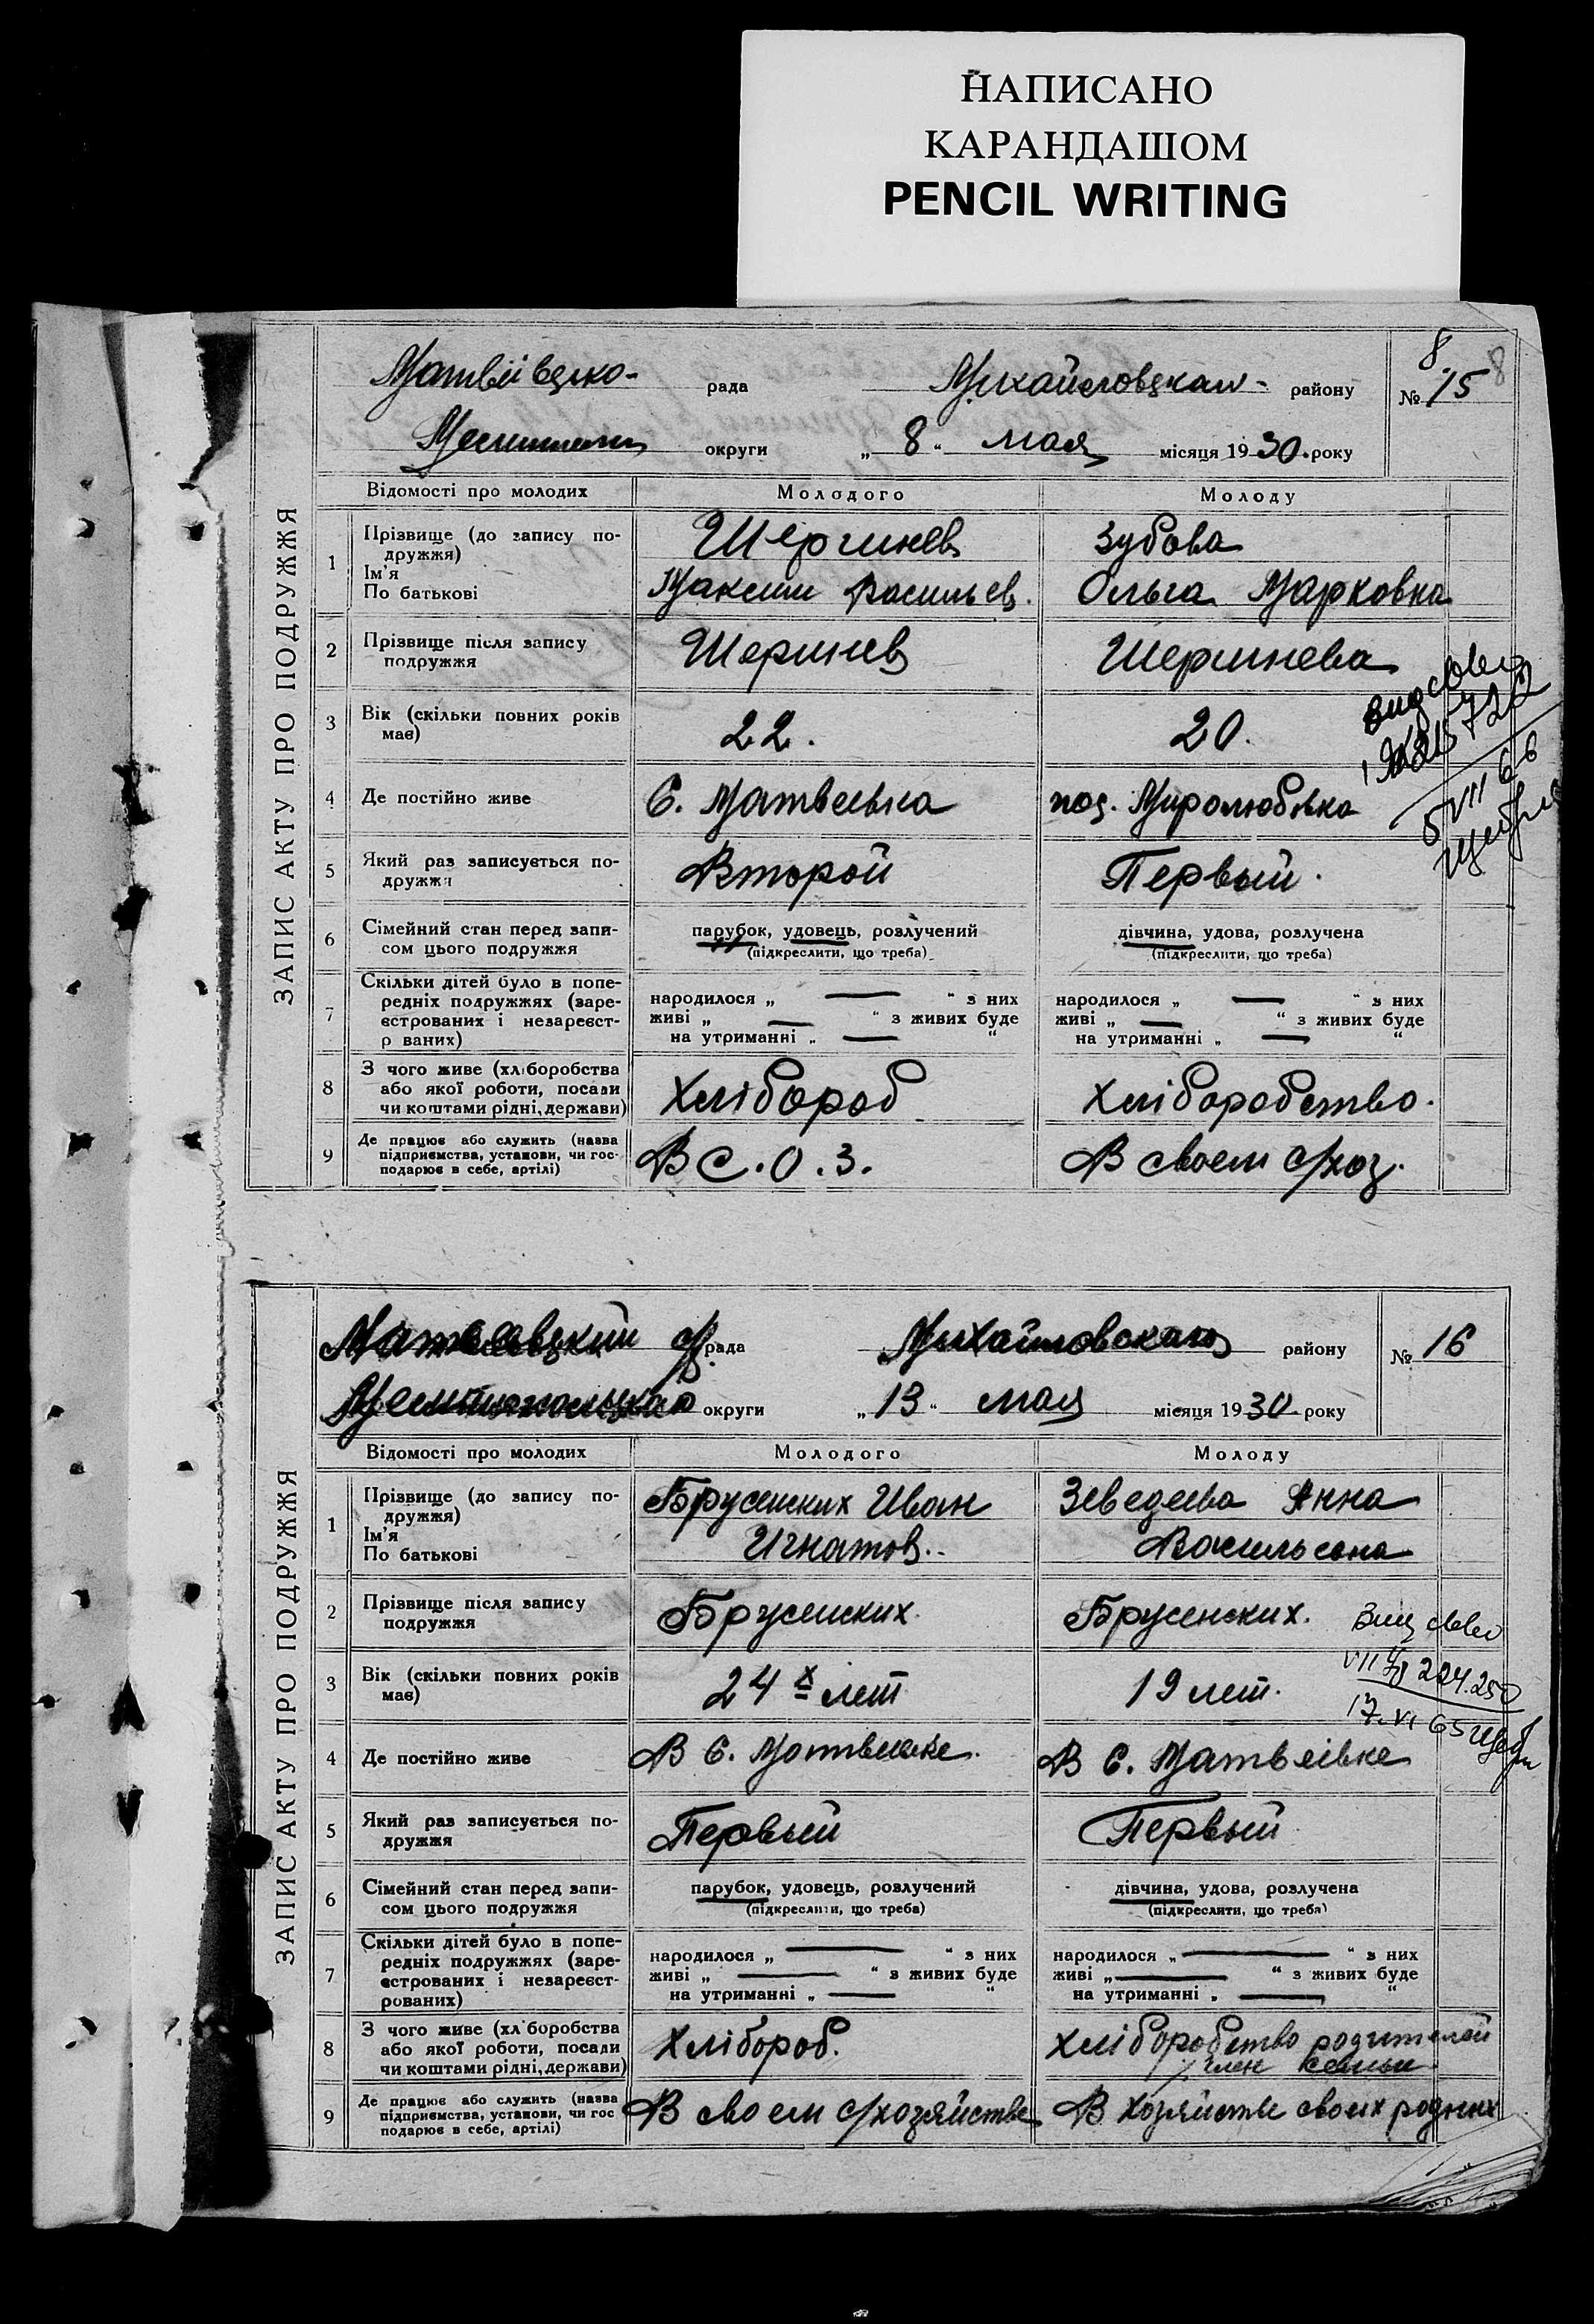 НАПИСАНО
КАРАНДАШОМ
PENCIL WRITING
8
8
рада Михайловскаго району № 15
округи „ 8 “ мая місяця 1930 року
ЗАПИС АКТУ ПРО ПОДРУЖЖЯ
Відомості про молодих Молодого Молоду
1 Прізвище (до запису подружжя) Зубова
Ім'я
По батькові Максим Васильев. Ольга Марковна
2 Прізвище після запису
подружжя
3 Вік (скільки повних років
має) 22. 20.
4 Де постійно живе С. Матвеевка пос. Миролюбовка
5 Який раз записується по-
дружжя Второй Первый.
6 Сімейний стан перед запи- парубок, удовець, розлучений дівчина, удова, розлучена
сом цього подружжя (підкреслити, що треба) (підкреслити, що треба)
7 Скільки дітей було в попе-
редніх подружжях (заре- народилося „ — “ з них народилося „ — “ з них
єстрованих і незареєст- живі „ — “ з живих буде живі „ — “ з живих буде
р ваних) на утриманні „ — “ на утриманні „ — “
8 З чого живе (хліборобства
або якої роботи, посади Хлібороб Хліборобство.
чи коштами рідні, держави)
9 Де працює або служить (назва
підприємства, установи, чи гос- В С.О.З. В своем с/хоз.
подарює в себе, артілі)
5 VII 66
рада Михайловскаго району № 16
округи „ 13 “ мая місяця 1930 року
ЗАПИС АКТУ ПРО ПОДРУЖЖЯ
Відомості про молодих Молодого Молоду
1 Прізвище (до запису по- Брусенских Иван Зеведеева Анна
дружжя)
Ім'я Игнатов. Васильевна
По батькові
2 Прізвище після запису Брусенских Брусенских.
подружжя
3 Вік (скільки повних років 24х лет 19 лет.
має)
17.VI 65
4 Де постійно живе В С. Матвеевке. В С. Матвеівке
5 Який раз записується по- Первый Первый
дружжя
6 Сімейний стан перед запи- парубок, удовець, розлучений дівчина, удова, розлучена
сом цього подружжя (підкреслити, що треба) (підкреслити, що треба)
7 Скільки дітей було в попе-
редніх подружжях (заре- народилося „ — “ з них народилося „ — “ з них
єстрованих і незареєст- живі „ — “ з живих буде живі „ — “ з живих буде
рованих) на утриманні „ — “ на утриманні „ — “
8 З чого живе (хліборобства
або якої роботи, посади Хлібороб. Хліборобство родителей
чи коштами рідні, держави) член семьи
9 Де працює або служить (назва
підприємства, установи, чи гос В своем с/хозяйстве В хозяйстве своих родных
подарює в себе, артілі)